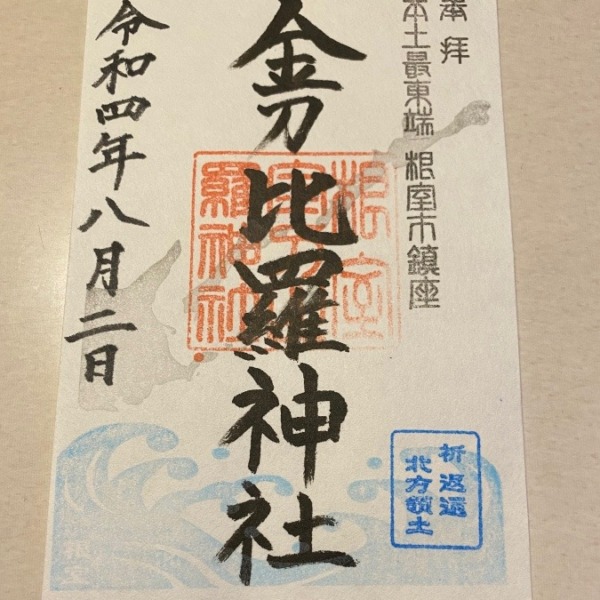 奉拝
本土最東端 根室市鎮座
金刀比羅神社
令和四年八月二日
祈 返還
北方領土
根室